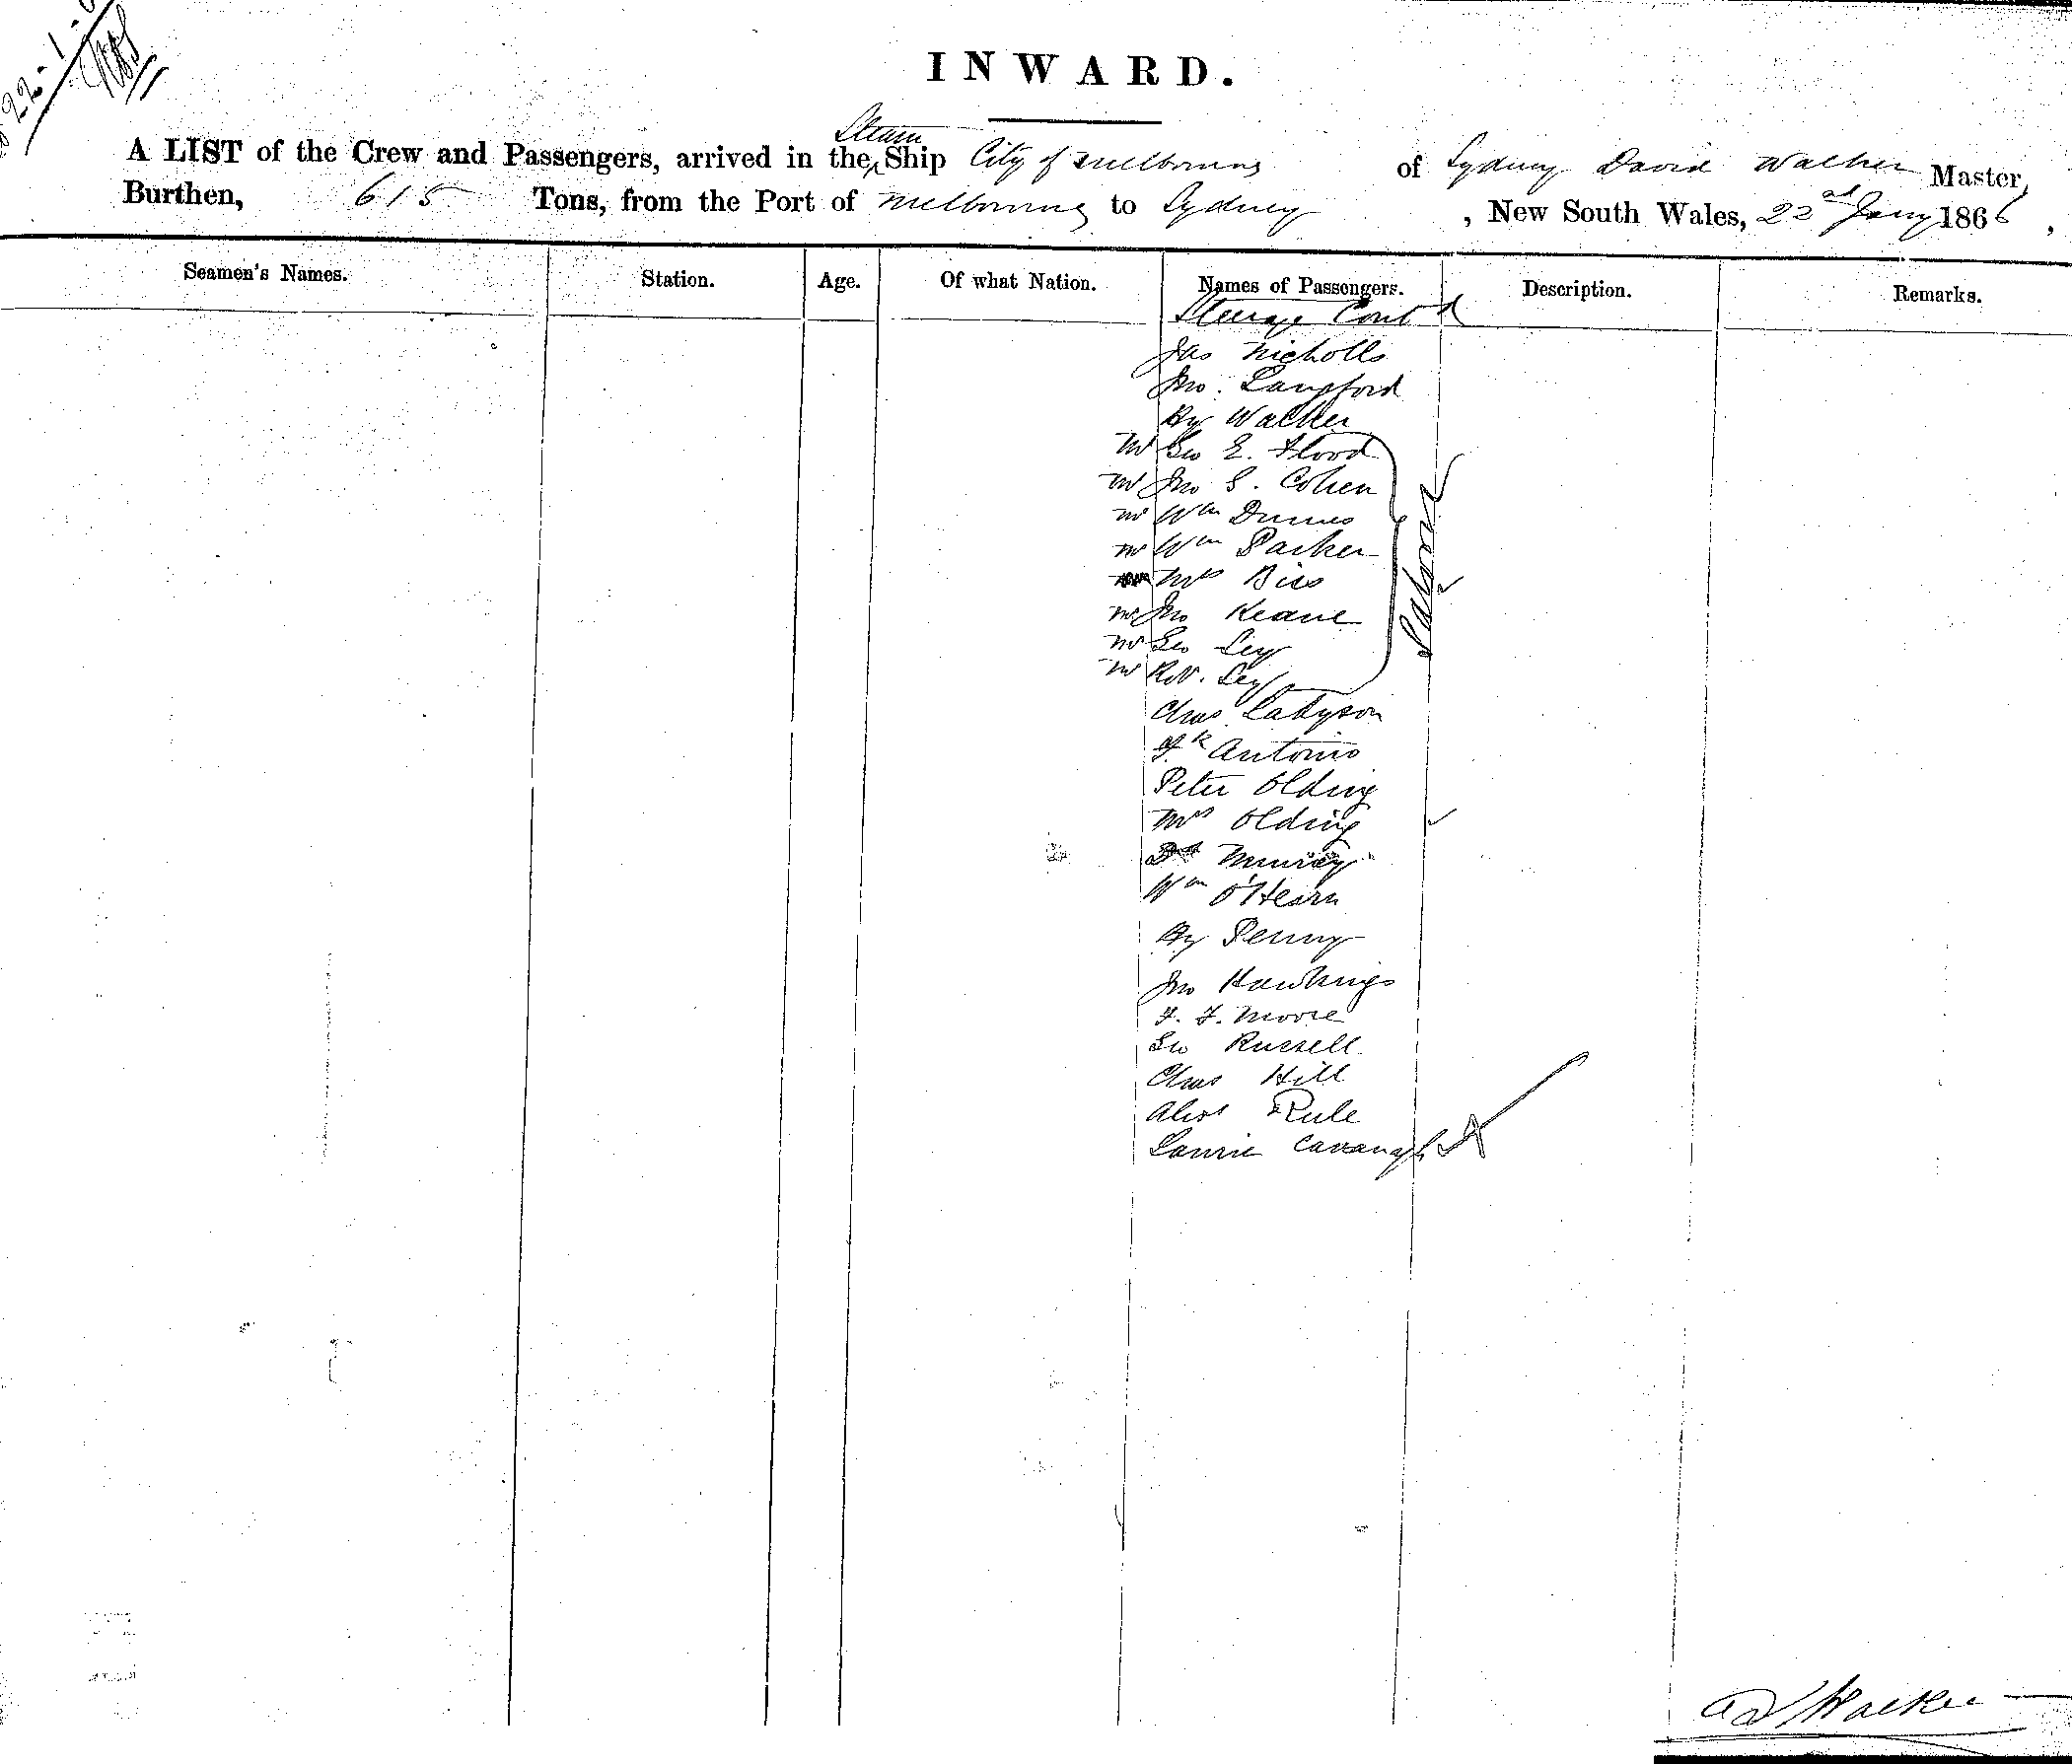 22-1-
INWARD.
A LIST of the Crew and Passengers, arrived in the Steam Ship City of Melbourne of Sydney David Walker Master,
Burthen, 615 Tons, from the Port of Melbourne to Sydney, New South Wales, 22nd Jany 1866,
Seamen's Names. Station. Age. Of what Nation. Names of Passengers. Description. Remarks.
Steerage Contd
Jas Nicholls
Jno. Langford
Hy Walker
Mr Geo E. Flood
Mr Jno S. Cohen
Mr Wm
Mr Wm Parker
Mrs
Mr Jno Keane
Mr Geo Ley
Mr Rob. Ley
Saloon
Chas
Fk Antonio
Peter Olding
Mrs Olding
Murray
Wm O'Hearn
Hy Penny
Jno Hawkings
F. F. Moore
Geo Russell
Chas Hill
Alexr Rule
Laurie Cavanagh
Walker